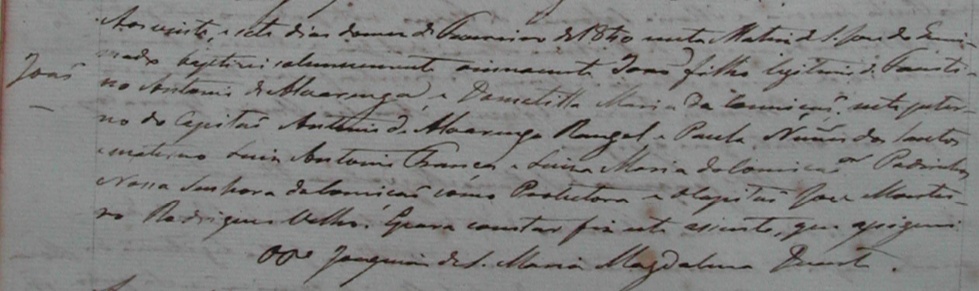 Aos vinte e sete dias do mes de Fevereiro de 1840 nesta Matris de S. Jose do
baptizei solemnemente o innocente João filho legitimo de Fausti-
João
no Antonio de Alvarenga, e Domitilla Maria da Conceiçaõ, neto pater-
no do Capitaõ Antonio de Alvarenga Rangel e Paula Nunes dos Santos
e materno Luis Antonio França e Luisa Maria da Conceiçaõ Padrinhos
Nossa Senhora da Conceiçaõ como Protectora e o Capitaõ Jose Marti-
no Rodrigues Velho. E para constar fiz este assento, que assignei
Joaquim de S. Maria Magdalena Duarte.